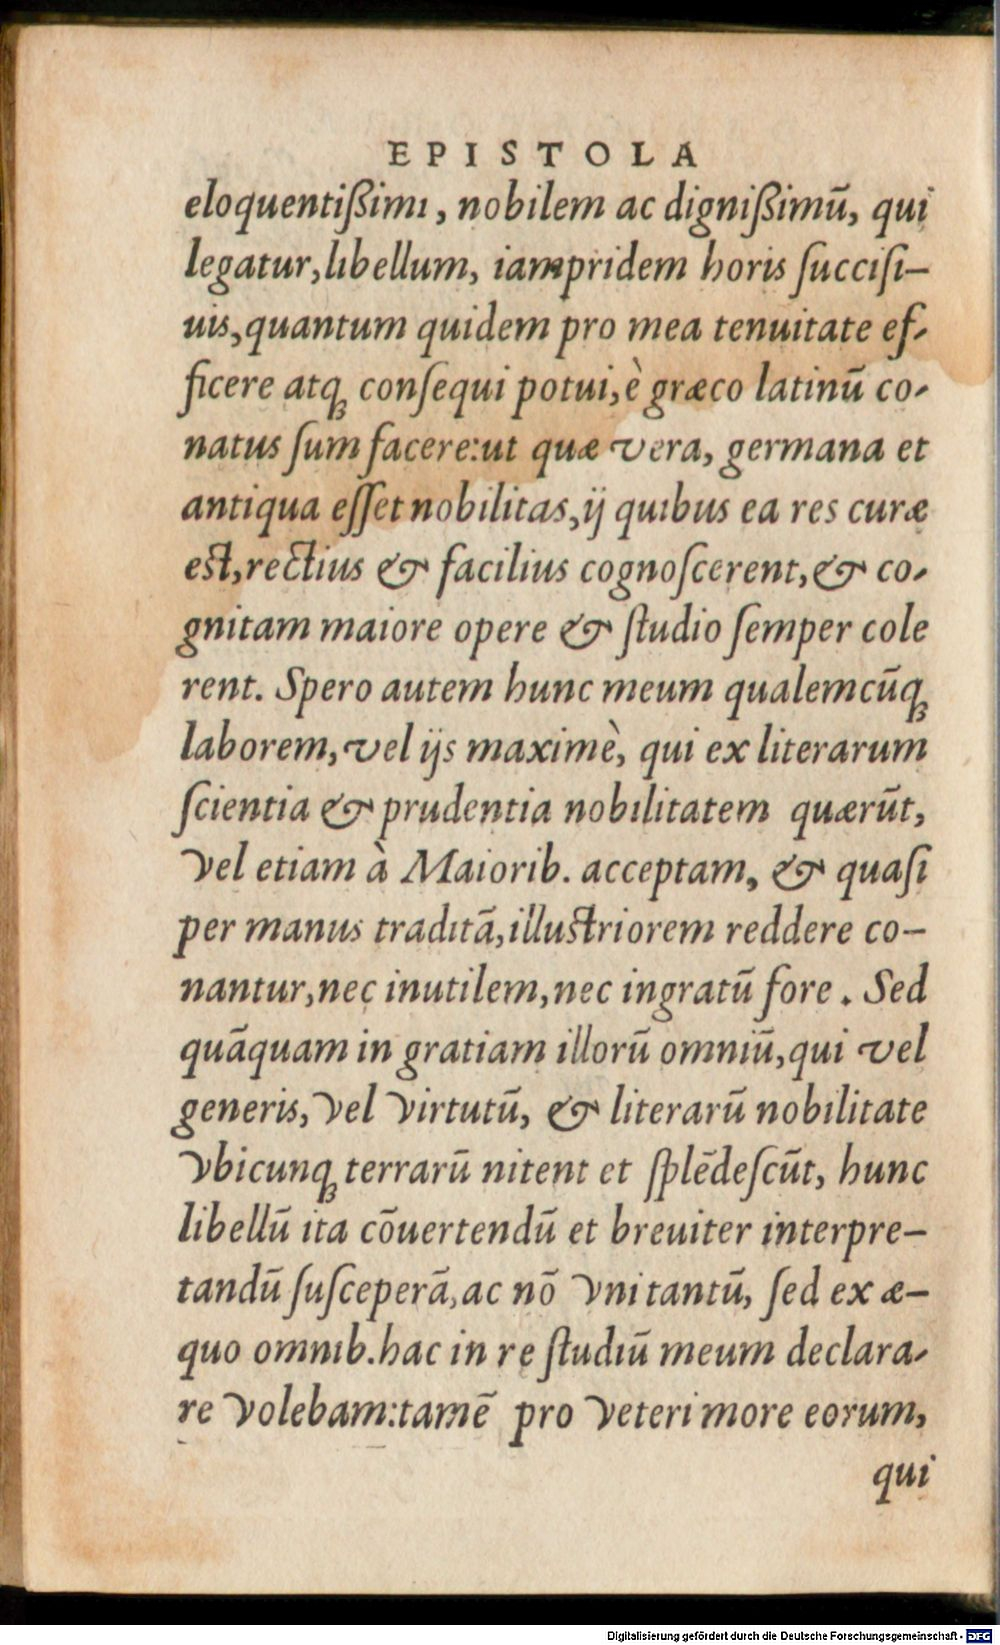 EPISTOLA
eloquentißimi, nobilem ac dignißimū, qui
legatur, libellum, iampridem horis ſucciſi-
uis, quantum quidem pro mea tenuitate ef-
ficere atqꝫ conſequi potui, è græco latinū co-
natus ſum facere: ut quæ vera, germana et
antiqua eſſet nobilitas, ij quibus ea res curæ
est, rectius & facilius cognoſcerent, & co-
gnitam maiore opere & ſtudio ſemper cole
rent. Spero autem hunc meum qualemcūqꝫ
laborem, vel ijs maximè, qui ex literarum
ſcientia & prudentia nobilitatem quærūt,
vel etiam à Maiorib. acceptam, & quaſi
per manus traditā, illustriorem reddere co-
nantur, nec inutilem, nec ingratū fore. Sed
quāquam in gratiam illorū omniū, qui vel
generis, vel virtutū, & literarū nobilitate
vbicunqꝫ terrarū nitent et ſplēdeſcūt, hunc
libellū ita cōuertendū et breuiter interpre-
tandū ſuſceperā, ac nō vni tantū, ſed ex æ-
quo omnib. hac in re ſtudiū meum declara-
re volebam: tamē pro veteri more eorum,
qui
Digitalisierung gefördert durch die Deutsche Forschungsgemeinschaft - DFG